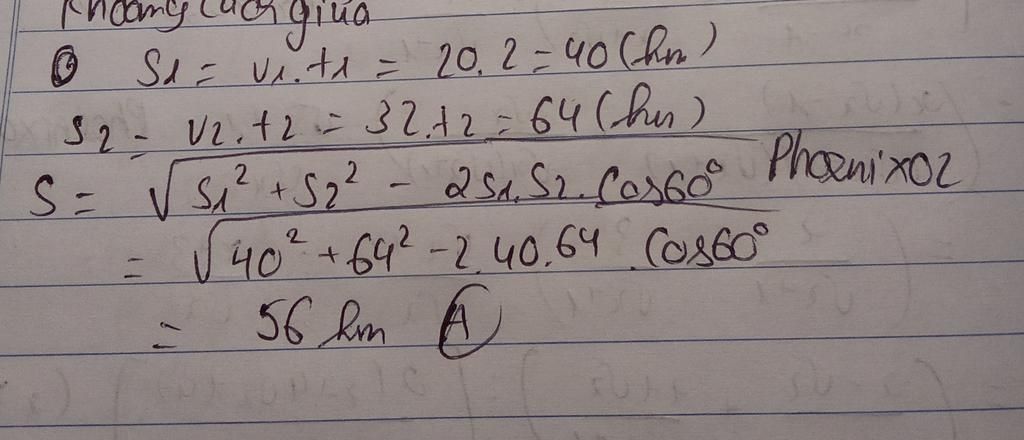 Khoảng cách giữa
S1 = v1.t1 = 20.2 = 40 (km)
S2 = v2.t2 = 32.t2 = 64 (km)
S = √S1² + S2² - 2S1.S2.Cos60° Phoenix02
= √40² + 64² - 2.40.64.Cos60°
= 56 km A